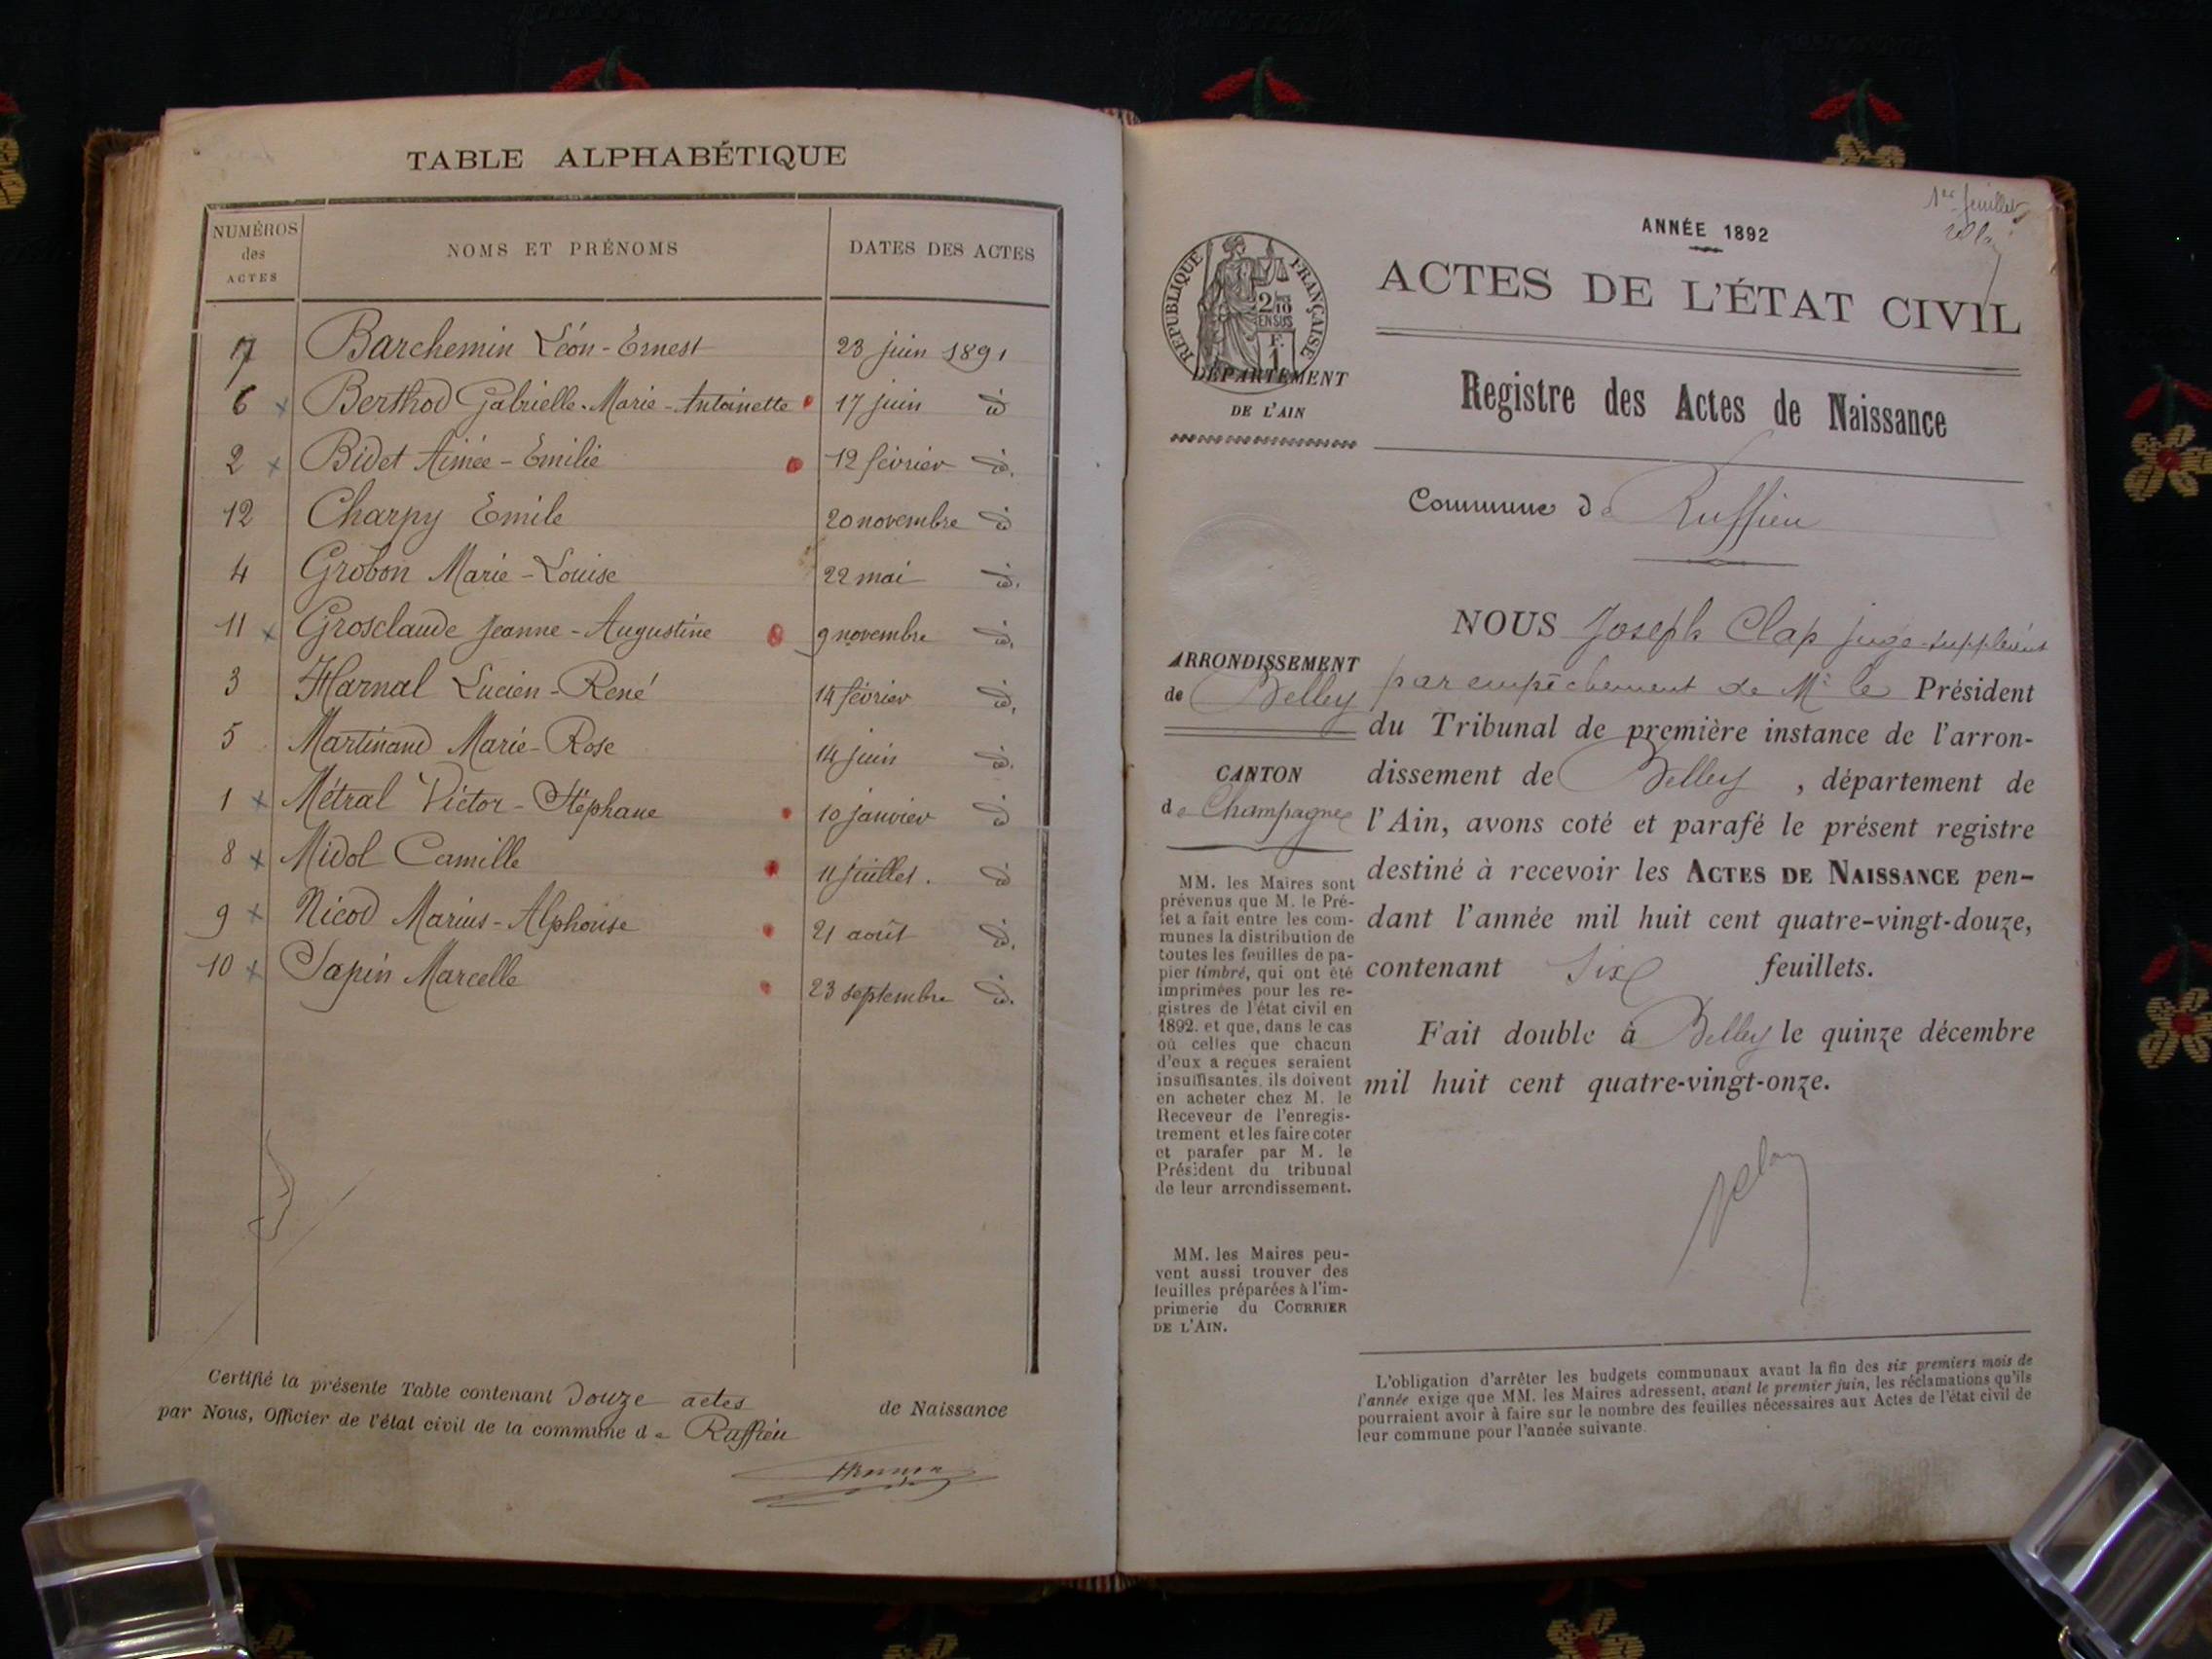 TABLE ALPHABÉTIQUE
NUMÉROS des ACTES
NOMS ET PRÉNOMS
DATES DES ACTES
7 Barchemin Léon-Ernest 23 juin 1891
6 x Berthod Gabrielle-Marie-Antoinette 17 juin id
2 x Bidet Aimée-Emilie 12 février id.
12 Charpy Emile 20 novembre id
4 Grobon Marie-Louise 22 mai id.
11 x Grosclaude Jeanne-Augustine 9 novembre id.
3 Harnal Lucien-René 14 février id.
5 Martinand Marie-Rose 14 juin id.
1 x Métral Victor-Stéphane 10 janvier id
8 x Midol Camille 11 juillet. id
9 x Nicod Marius-Alphonse 21 août id.
10 x Sapin Marcelle 23 septembre id.
Certifié la présente Table contenant douze actes de Naissance
par Nous, Officier de l'état civil de la commune de Ruffieu
1er feuillet
ANNÉE 1892
ACTES DE L'ÉTAT CIVIL
RÉPUBLIQUE FRANÇAISE
2/10 EN SUS
F. 1
DÉPARTEMENT
DE L'AIN
Registre des Actes de Naissance
Commune de Ruffieu
ARRONDISSEMENT
de Belley
CANTON
de Champagne
MM. les Maires sont
prévenus que M. le Pré-
fet a fait entre les com-
munes la distribution de
toutes les feuilles de pa-
pier timbré, qui ont été
imprimées pour les re-
gistres de l'état civil en
1892. et que, dans le cas
où celles que chacun
d'eux a reçues seraient
insuffisantes, ils doivent
en acheter chez M. le
Receveur de l'enregis-
trement et les faire coter
et parafer par M. le
Président du tribunal
de leur arrondissement.
MM. les Maires peu-
vent aussi trouver des
feuilles préparées à l'im-
primerie du COURRIER
DE L'AIN.
NOUS Joseph Clap juge-suppléant
par empêchement de Mr le Président
du Tribunal de première instance de l'arron-
dissement de Belley, département de
l'Ain, avons coté et parafé le présent registre
destiné à recevoir les ACTES DE NAISSANCE pen-
dant l'année mil huit cent quatre-vingt-douze,
contenant six feuillets.
Fait double à Belley le quinze décembre
mil huit cent quatre-vingt-onze.
L'obligation d'arrêter les budgets communaux avant la fin des six premiers mois de
l'année exige que MM. les Maires adressent, avant le premier juin, les réclamations qu'ils
pourraient avoir à faire sur le nombre des feuilles nécessaires aux Actes de l'état civil de
leur commune pour l'année suivante.